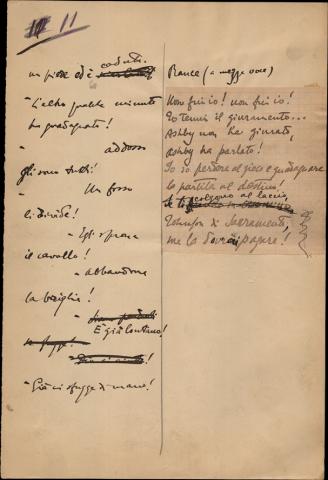 11
un piede ed è caduto.
- L'altro qualche minuto
ha guadagnato!
- addosso
gli sono tutti!
- Un fosso
li divide!
- Egli sprona
il cavallo!
- abbandona
la briglia!
-
È già lontano!
- Già ci sfugge di mano!
Rance (a mezza voce)
Non fui io! non fui io!
Io tenni il giuramento...
Ashby non ha giurato,
Ashby ha parlato!
Io so perdere al gioco e guadagnare
la partita al destino!
Se ti colgono al laccio,
Johnson di Sacramento,
me la dovrai pagare!